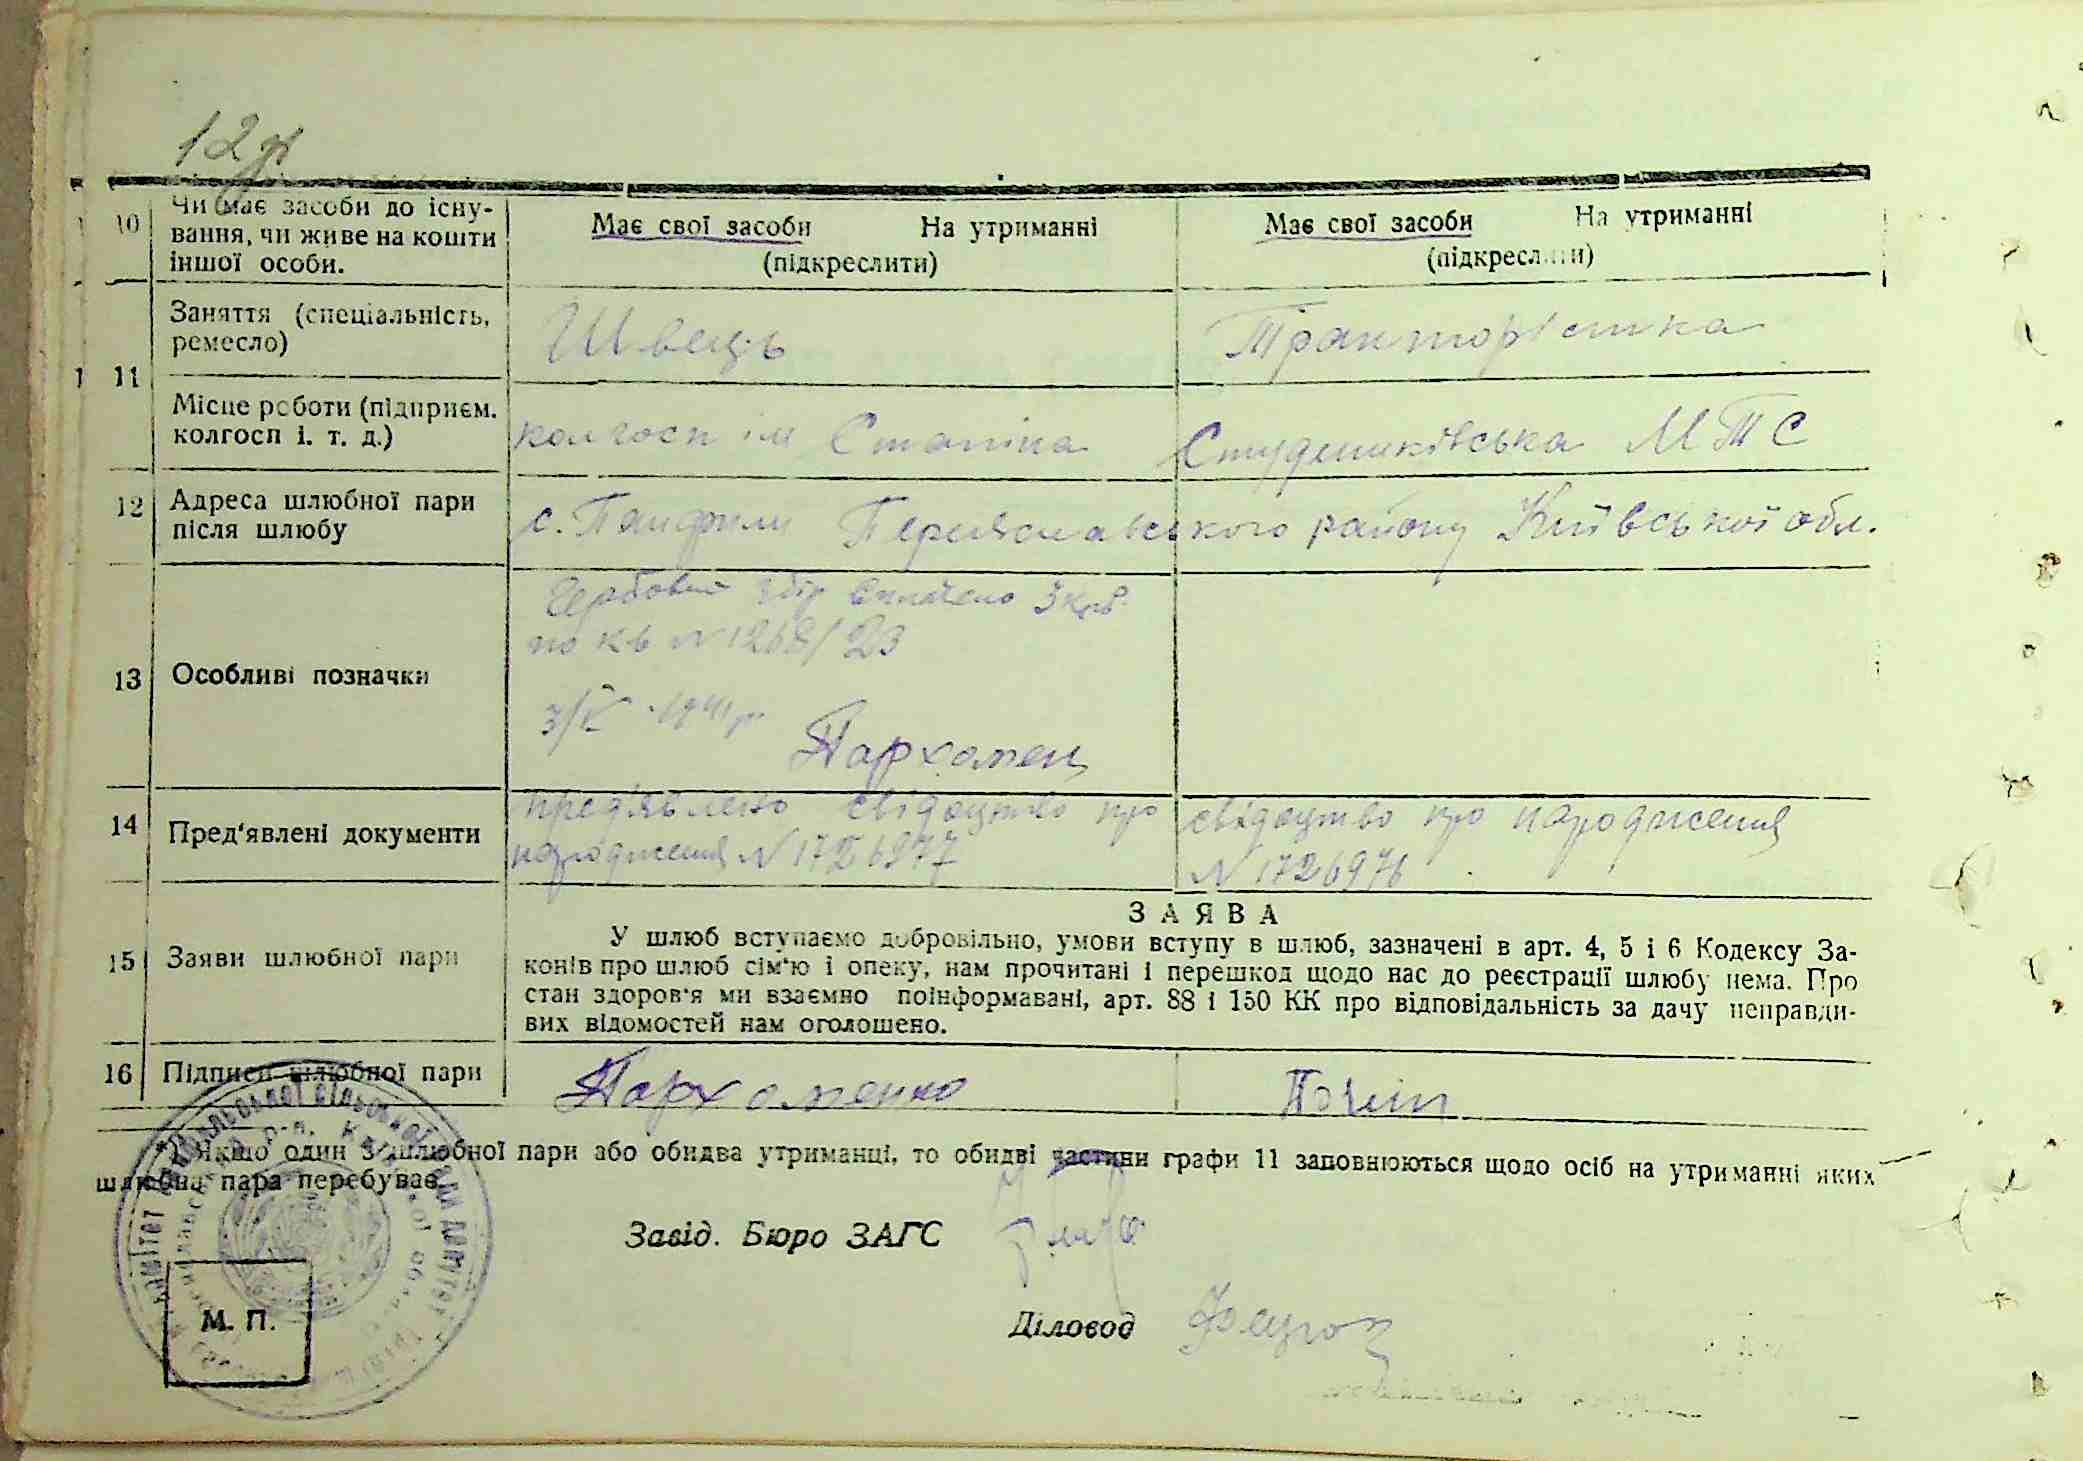 12
10 Чи має засоби до існу-
вання, чи живе на кошти
іншої особи.
Має свої засоби На утриманні
(підкреслити)
Має свої засоби На утриманні
(підкреслити)
11
Заняття (спеціальність,
ремесло)
Швець
Тракторістка
Місце роботи (підприєм.
колгосп і. т. д.)
колгосп ім Сталіна
Студениківська МТС
12 Адреса шлюбної пари
після шлюбу
с. Панфили Переяславського району Київської обл.
13 Особливі позначки
Гербовий збір вплачено 3 крб
по кв N 1268/23
3/ 1941 р.
Пархомен
14 Пред'явлені документи
пред'явлено свідоцтво про
народження N 1726977
свідоцтво про народження
N 1726976
15 Заяви шлюбної пари
ЗАЯВА
У шлюб вступаємо добровільно, умови вступу в шлюб, зазначені в арт. 4, 5 і 6 Кодексу За-
конів про шлюб сім'ю і опеку, нам прочитані і перешкод щодо нас до реєстрації шлюбу нема. Про
стан здоров'я ми взаємно поінформавані, арт. 88 і 150 КК про відповідальність за дачу неправди-
вих відомостей нам оголошено.
16 Підписи шлюбної пари
Пархоменко
*) Якщо один з шлюбної пари або обидва утриманці, то обидві частини графи 11 заповнюються щодо осіб на утриманні яких
шлюбна пара перебуває.
Завід. Бюро ЗАГС
М. П.
Діловод